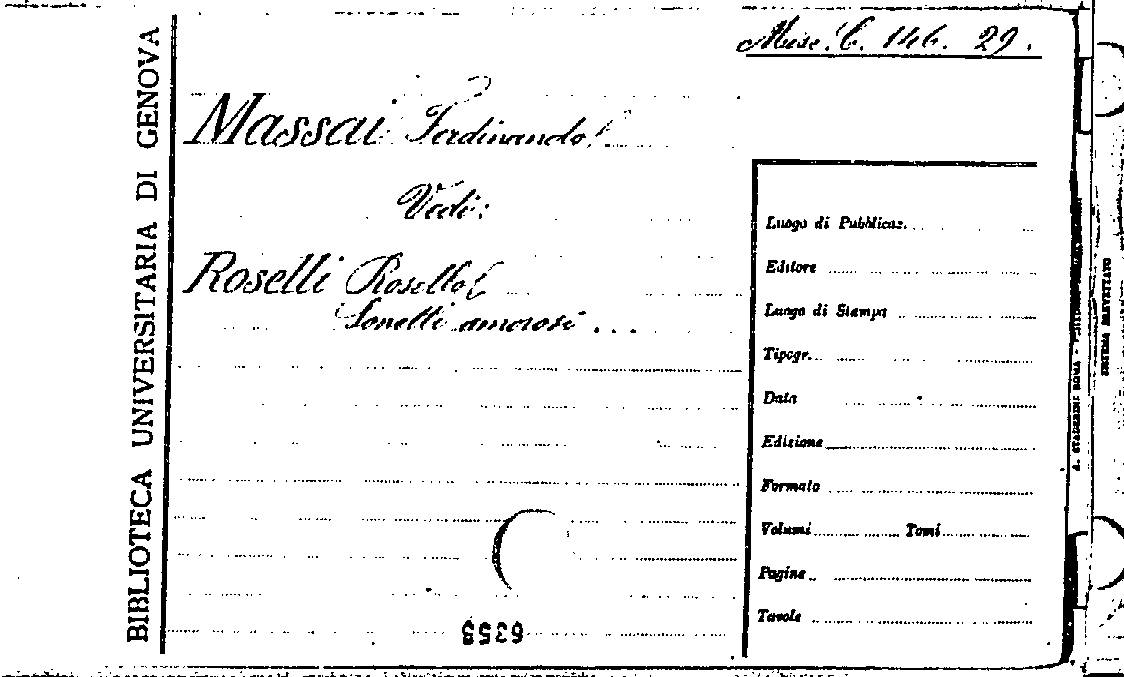 Misc. C. 146. 29.
BIBLIOTECA UNIVERSITARIA DI GENOVA
Massai Ferdinando
Vedi:
Roselli Rosello
Sonetti amorosi ...
Luogo di Pubblicaz.
Editore
Luogo di Stampa
Tipogr.
Data
Edizione
Formato
Volumi Tomi
Pagine
Tavole
A. STADERINI ROMA